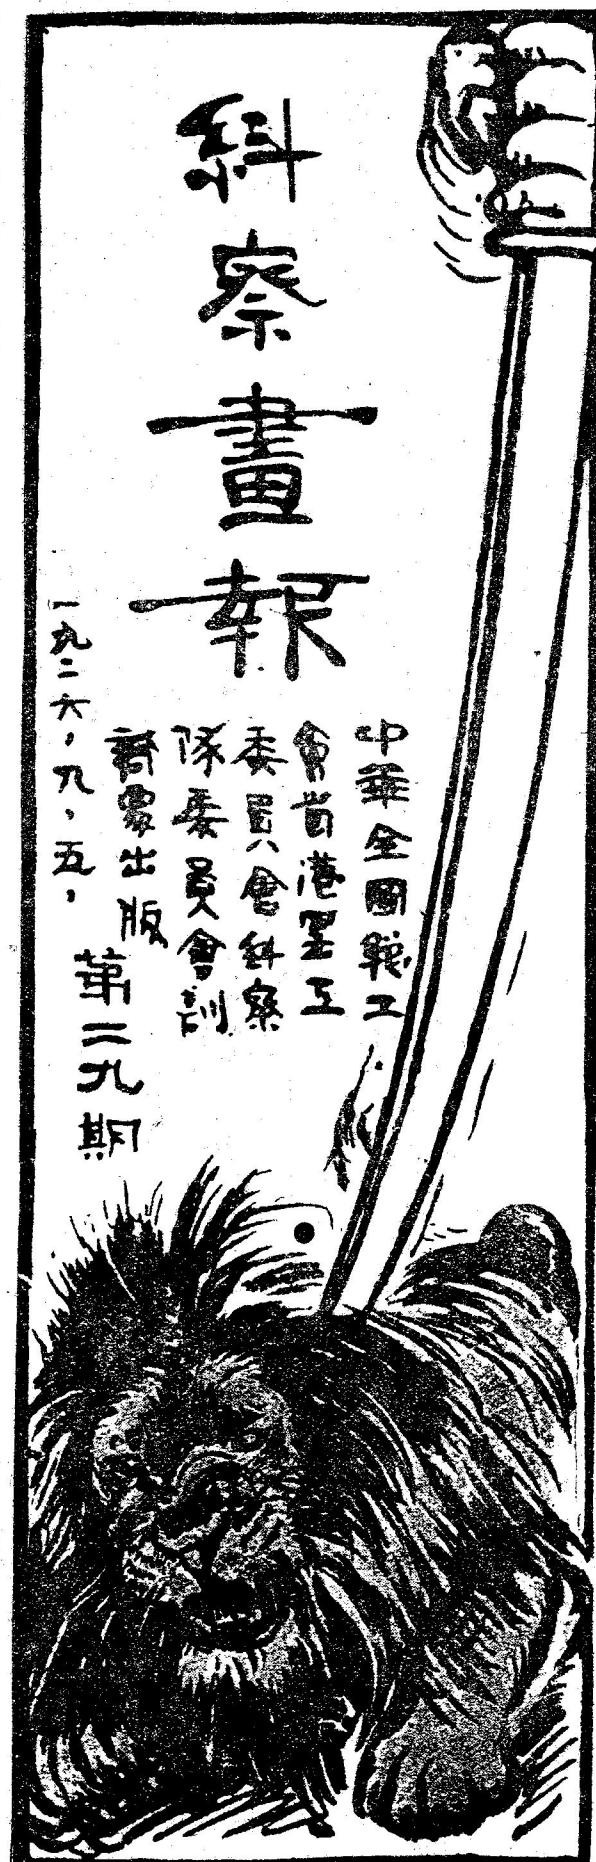 紏察畫報
中華全國總工
會省港罷工
委員會紏察
隊委員會訓
育處出版
第二九期
一九二六，九，五，